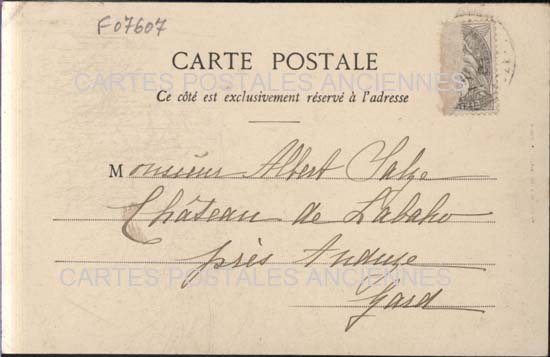 F07607
CARTE POSTALE
CARTES POSTALES ANCIENNES
Ce côté est exclusivement réservé à l'adresse
Monsieur Albert Salze
Château de Labaho
près Anduze
CARTES POSTALES ANCIENNES
Gard